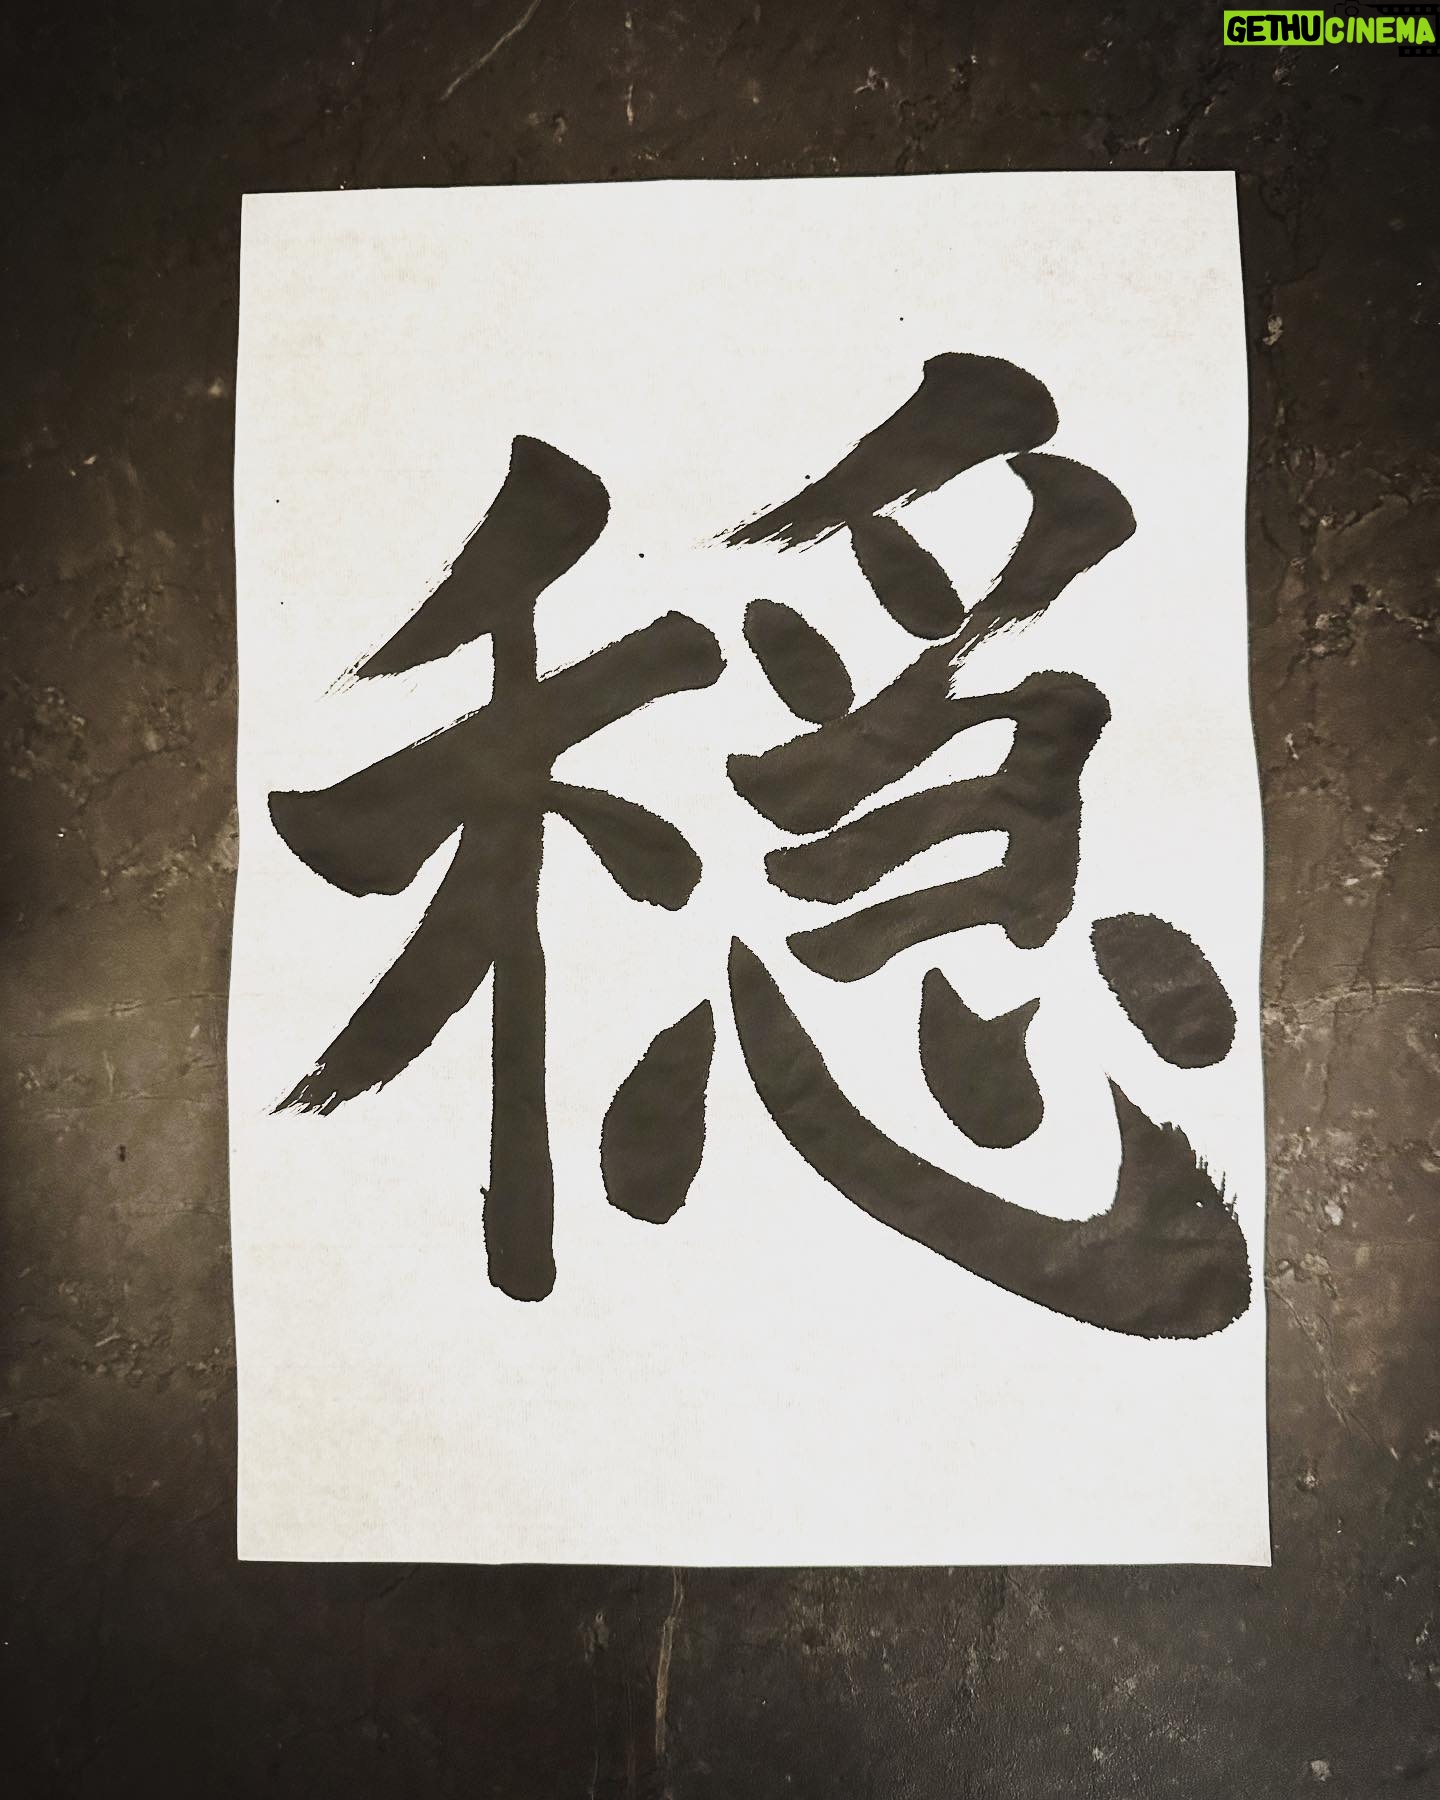 GETHUCINEMA
穏